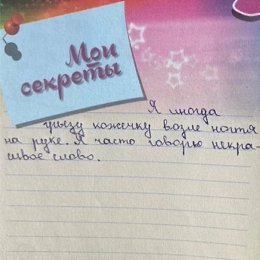 Мои
секреты
Я иногда
грызу кожечку возле ногтя
на руке. Я часто говорю некра-
сивое слово.